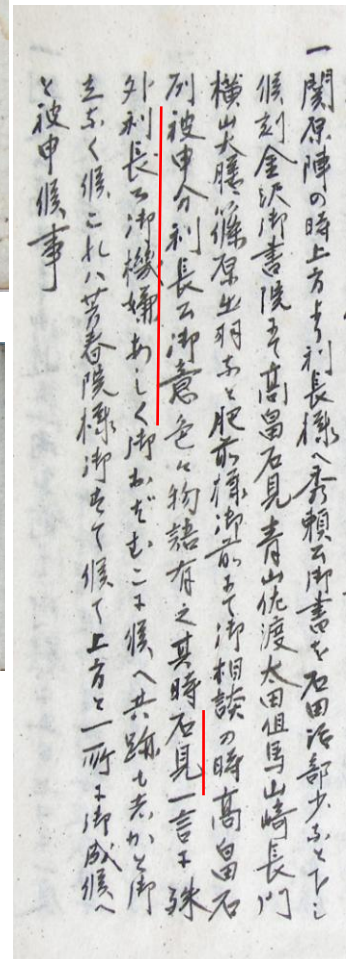 一関原陣の時上方より利長様へ秀頼公御書を石田治部少なと下し
候刻金沢御書院にて高畠石見青山佐渡太田但馬山崎長門
横山大膳篠原出羽なと肥前様御前にて御相談の時高畠石
列被申分利長公御意色々物語有之其時石見一言に殊
外利長公御機嫌あしく御おそむこに候へ共跡も志かと御
立なく候これハ芳春院様御すて候て上方と一所に御成候へ
と被申候事